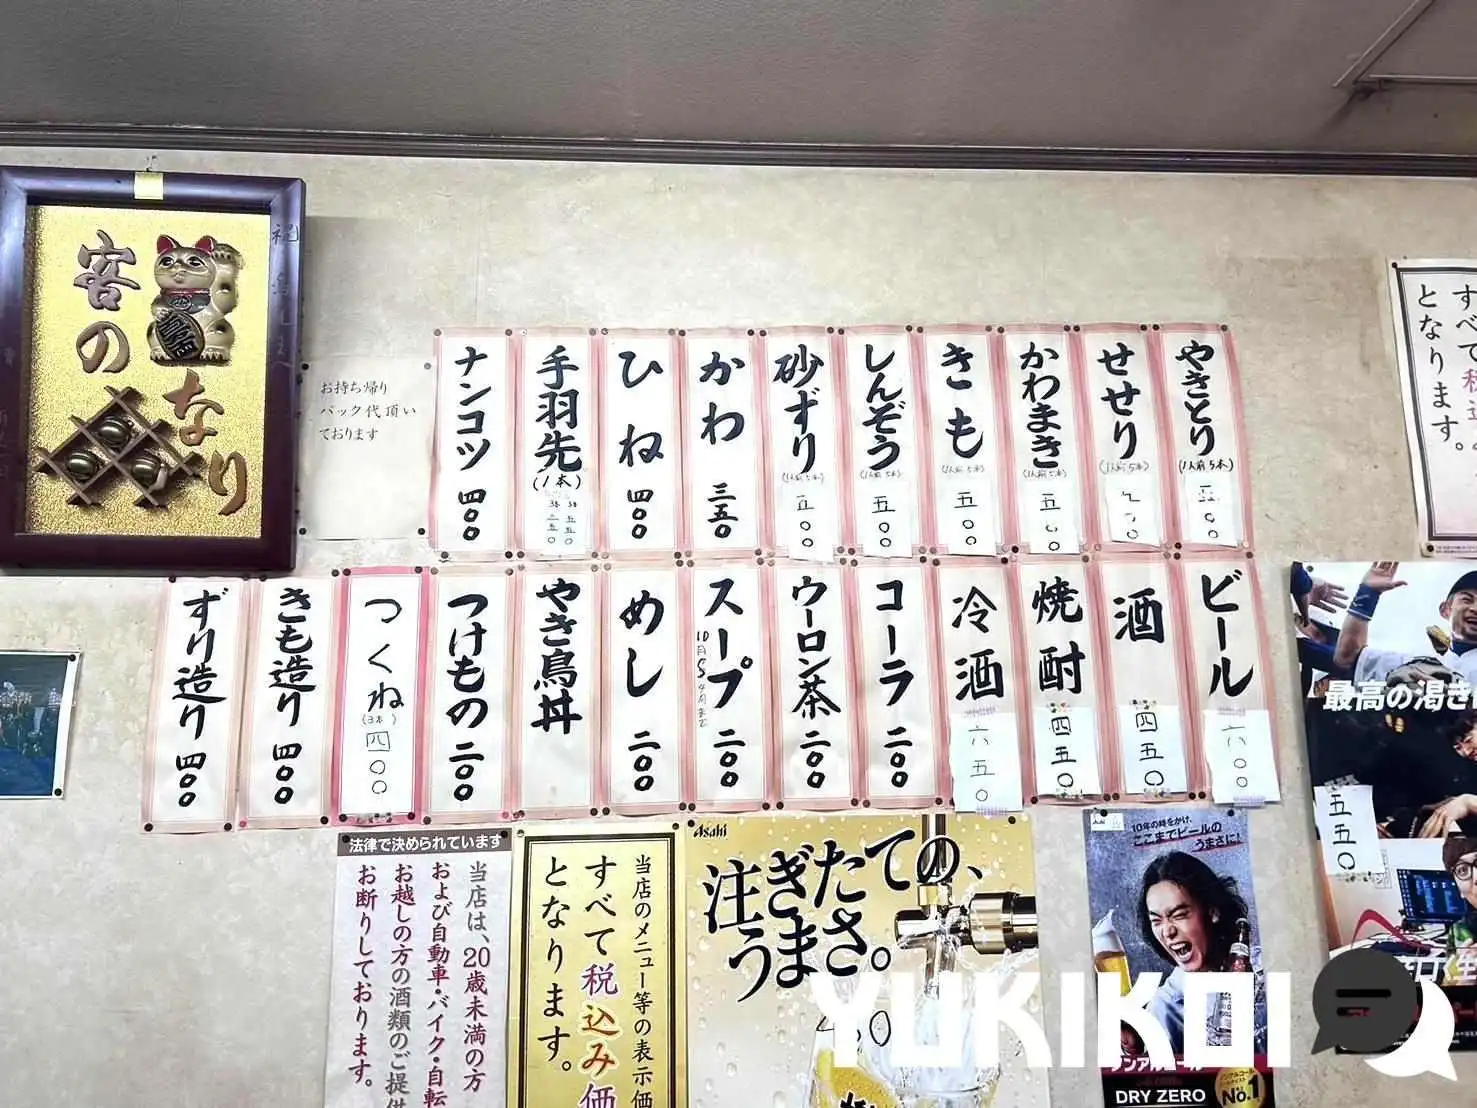 客の
なり
お持ち帰り
パック代頂い
ております
やきとり
(1人前5本)
せせり
(1人前5本)
かわまき
(1人前5本)
五〇〇
きも
(1人前5本)
五〇〇
しんぞう
(1人前5本)
五〇〇
砂ずり
(1人前5本)
五〇〇
かわ
三五〇
ひね
四〇〇
手羽先
(1本)
ナンコツ
四〇〇
ビール
六〇〇
酒
四五〇
焼酎
四五〇
冷酒
六五〇
コーラ
二〇〇
ウーロン茶
二〇〇
スープ
二〇〇
めし
二〇〇
やき鳥丼
つけもの
二〇〇
つくね
(3本)
四〇〇
きも造り
四〇〇
ずり造り
四〇〇
すべて税
となります。
法律で決められています
当店は、20歳未満の方
および自動車・バイク・自転
お越しの方の酒類のご提供
お断りしております。
当店のメニュー等の表示価
すべて税込み価
となります。
Asahi
注ぎたての、
うまさ。
10年の時をかけ、
ここまでビールの
うまさに!
DRY ZERO
No.1
最高の渇き
五五〇
YUKIKOI